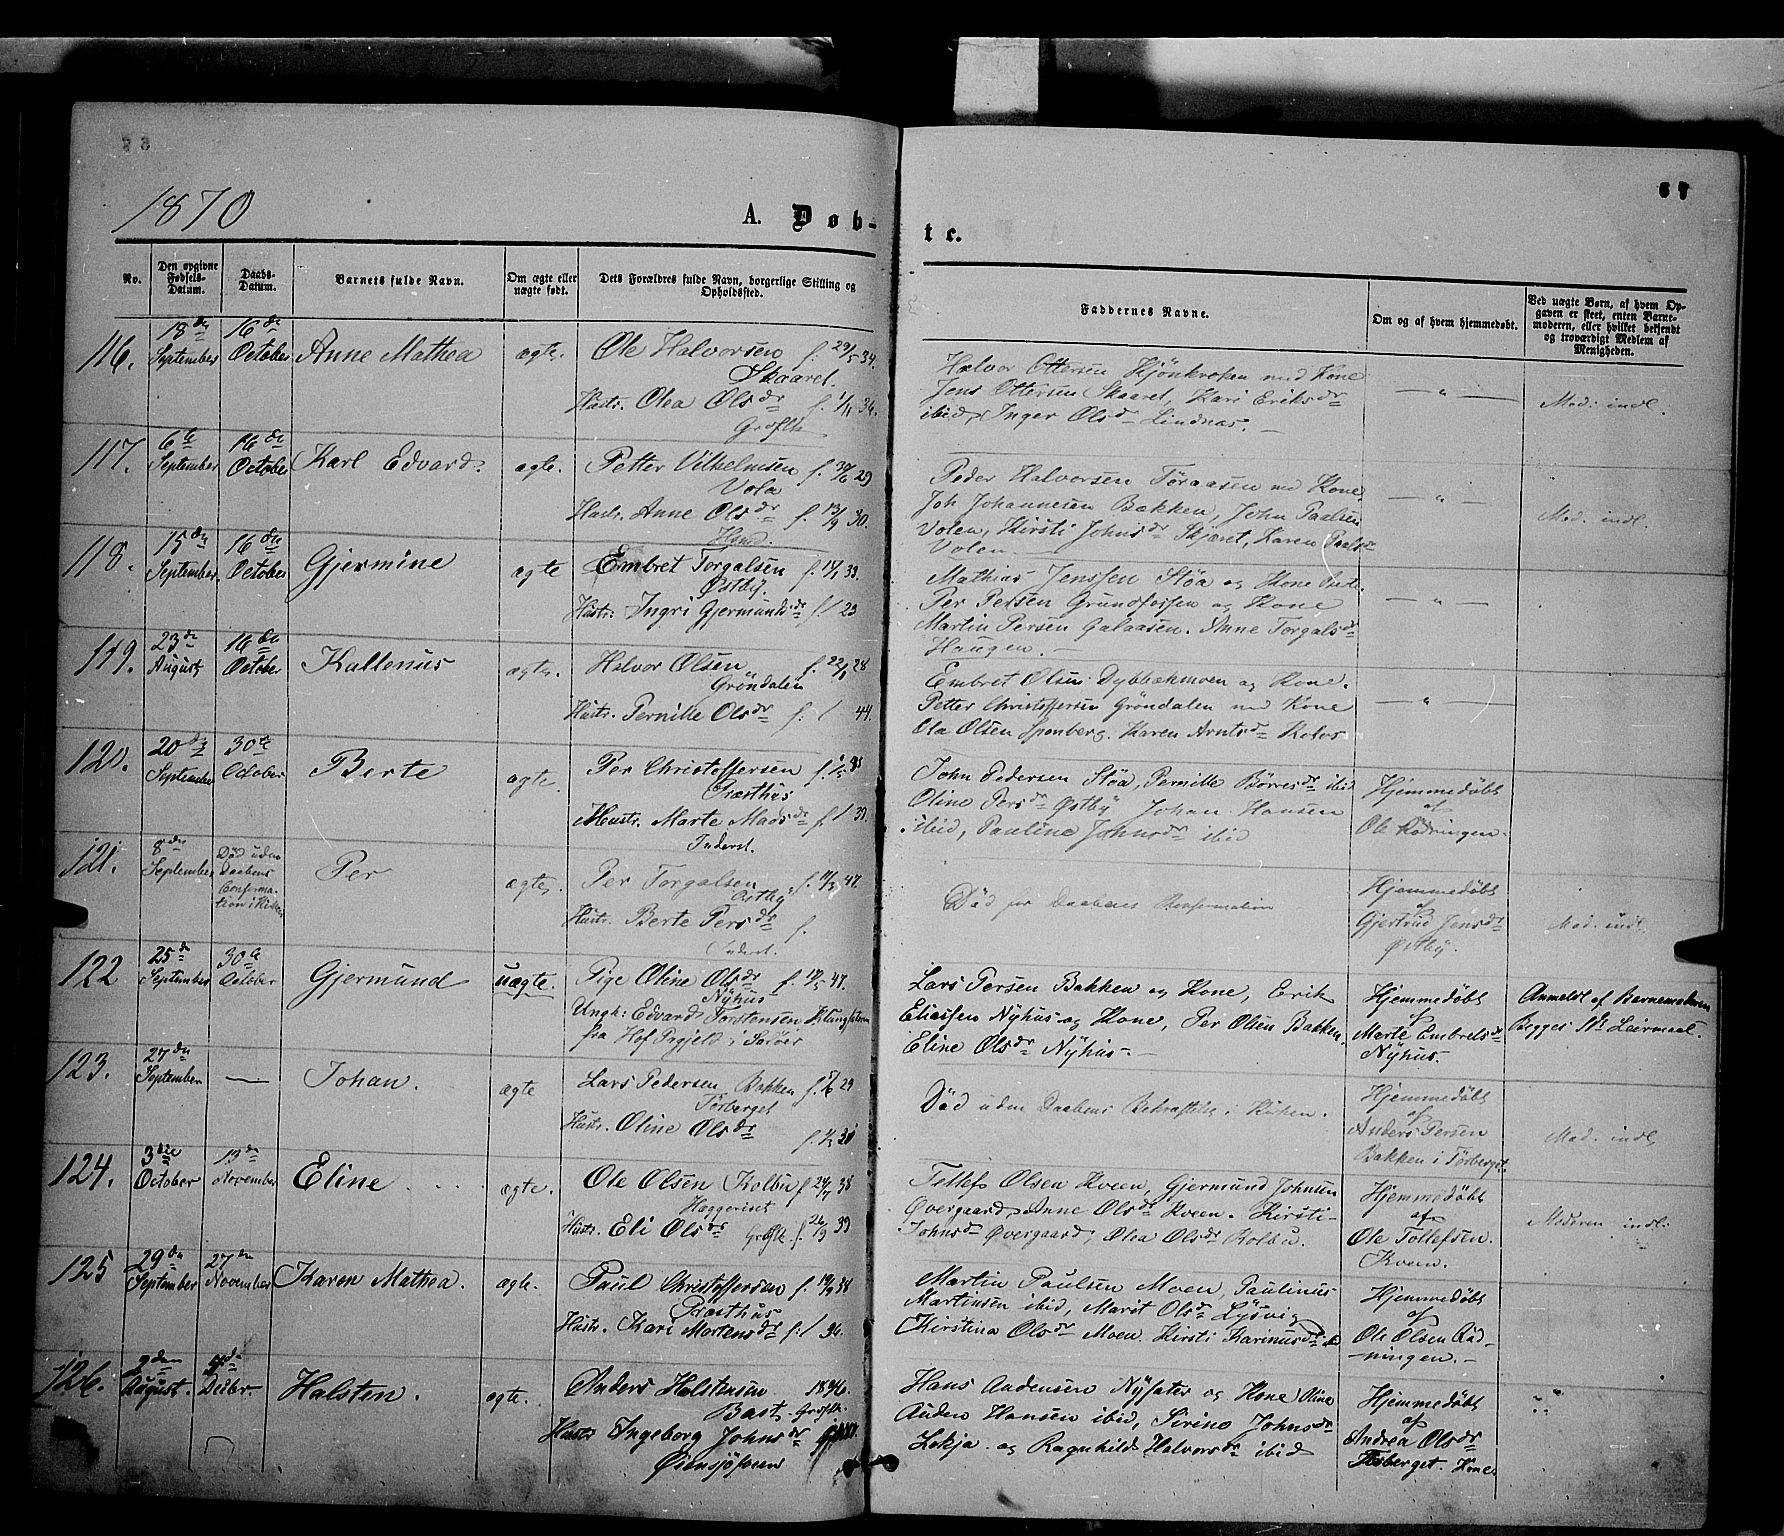 1870
A. Døb-
te.
67
No.
Den opgivne Fødsels-Datum.
Daabs-Datum.
Barnets fulde Navn.
Om ægte eller uægte født.
Dets Forældres fulde Navn, borgerlige Stilling og Opholdssted.
Faddernes Navne.
Om og af hvem hjemmedøbt.
Ved uægte Børn, af hvem Opgaven er skeet, enten Barnemoderen, eller hvilket bekjendt og troværdigt Medlem af Menigheden.
116. 18de September 16de October Anne Mathea ægte. Ole Halvorsen f. 29/5 34.
Skaaret.
Hustr. Olea Olsdr f. 1/11 34.
Halvor Ottersen Kjönkroken med Kone
Jens Ottersen Skaaret, Kari Eriksdr
ibid, Inger Olsdr Lindnæs.
— " —
Mod: indl.
117. 6te September 16de October Karl Edvard. ægte. Petter Vilhelmsen f. 30/6 29
Vola
Hustr. Anne Olsdr f. 13/9 30.
Peder Halvorsen Töraasen med Kone
Joh Johannesen Bakken, John Paalsen
Volen, Kirsti Johnsdr Skjæret, Karen Paalsdr
Volen.
— " —
Mod. indl.
118. 15de September 16de October Gjermine ægte Embret Torgalsen f. 33.
Østby
Hustr. Ingri Gjermundsdr f. / 23
Mathias Jenssen Støa og Kone
Per Persen Grundfossen og Kone
Martin Persen Galaasen. Anne Torgalsdr
Haugen.
— " —
119. 23de August 16de October Kallenus ægte. Halvor Olsen f. 22/1 28
Gröndalen
Hustr. Pernille Olsdr f. / 44.
Embret Olsen Dybbækmoen og Kone.
Petter Christoffersen Gröndalen med Kone
Ola Olsen Sponberg. Karen Arntsdr Kolos
— " —
120. 20de September 30te October Berte ægte. Per Christoffersen
Præsthus
Hustr. Marte Madsdr f. / 39.
Inderst.
John Pedersen Støa, Pernille Börresdr ibid
Oline Persdr Østby Johan Hansen
ibid, Pauline Johnsdr ibid
Hjemmedøbt
af
Ole Rödningen.
121. 8de September Död uden Daabens Confirmation i Kirken Per ægte. Per Torgalsen 47.
Østby
Hustr. Berte Persdr f.
Inderst.
Död før Daabens Konfirmation
Hjemmedøbt
af
Gjertrud Jensdr
Østby.
Mod. indl.
122 25de September 30te October Gjermund uægte. Pige Oline Olsdr f. 47.
Nyhus
Ungk: Edvard Torstensen
fra Hof Prgjeld i Solöer
Lars Persen Bakken og Kone, Erik
Eliassen Nyhus og Kone, Per Olsen Bakken,
Eline Olsdr Nyhus.
Hjemmedøbt
af
Marte Embretsdr
Nyhus.
Anmeldt af Barnemoderen
Begges 1ste Leiermaal.
123. 27de September — Johan. ægte Lars Pedersen Bakken f. 29
Törberget
Hustr. Oline Olsdr
Död uden Daabens Bekræftelse i Kirken.
Hjemmedøbt
af
Anders Persen
Bakken i Törberget.
Mod. indl.
124. 3die October 13de November Eline ægte. Ole Olsen Kolbu f 24/7 38
Haggeriset
Hustr. Eli Olsdr f. 26/9 39
Tollef Olsen Kveen, Gjermund Johnsen
Øvergaard, Anne Olsdr Kveen. Kirsti
Johnsdr Øvergaard, Olea Olsdr Kolbu.
Hjemmedøbt
af
Ole Tollefsen.
Kveen.
Moderen indl.
125 29de September 27de November Karen Mathea. ægte. Paul Christoffersen f. 19/9 38
Præsthus
Hustr. Kari Mortensdr f. / 34.
Martin Paulsen Moen, Paulinus
Martinsen ibid, Marit Olsdr Lysvig
Kirstina Olsdr Moen. Kirsti Karinusdr
Hjemmedøbt
af
Ole Olsen Röd-
ningen.
126. 2den August. Desbr. Halsten. ægte. Anders Halstensen 1846.
Bast
Hustr Ingeborg Johnsdr
Øiensjöveen
Hans Andersen Nysæter og Kone Oline
Auden Hansen ibid, Sirino Johnsdr
Lekja. og Ragnhild Halvorsdr ibid
Hjemmedøbt
af
Andrea Olsdr
Torberget. Kone